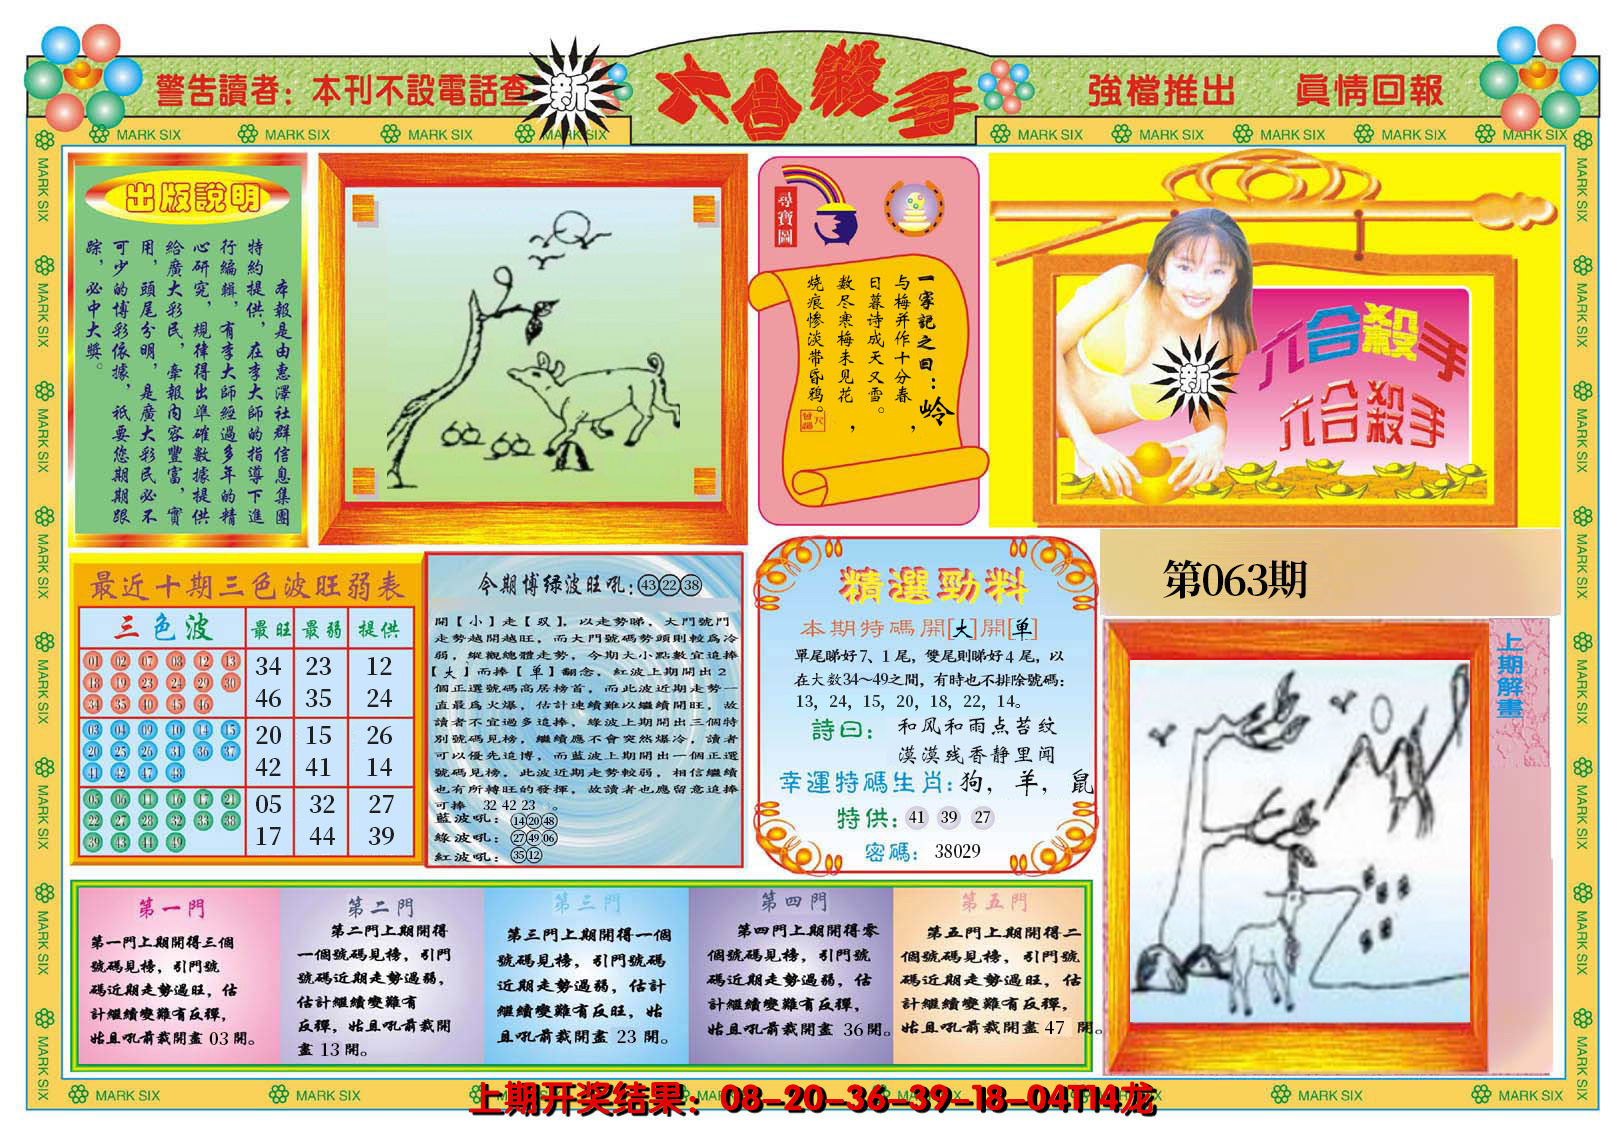 警告讀者：本刊不設電話查
新
六合殺手
強檔推出 眞情回報
MARK SIX
MARK SIX
MARK SIX
MARK SIX
MARK SIX
MARK SIX
MARK SIX
MARK SIX
MARK SIX
出版說明
本報是由惠澤社群信息集團
特約提供，在李大師的指導下進
行編輯，有李大師經過多年的精
心研究，規律得出準確數據提供
給廣大彩民，牽報內容豐富，實
用，頭尾分明，是廣大彩民必不
可少的博彩依據，祇要您期期跟
踪，必中大獎。
尋寶圖
一字記之曰：岭
与梅并作十分春，
日暮诗成天又雪。
数尽寒梅未见花，
烧痕惨淡带昏鸦。
新
六合殺手
六合殺手
第063期
上期解畫
最近十期三色波旺弱表
三色波 最旺 最弱 提供
01 02 07 08 12 13
18 19 23 24 29 30
34 35 40 45 46
34 23 12
46 35 24
03 04 09 10 14 15
20 25 26 31 36 37
41 42 47 48
20 15 26
42 41 14
05 06 11 16 17 21
22 27 28 32 33 38
39 43 44 49
05 32 27
17 44 39
今期博绿波旺吼：43 22 38
開【小】走【双】，以走势睇，大門號門
走勢越開越旺，而大門號碼勢頭則較爲冷
弱，縱觀總體走势，今期大小點數宜追捧
【大】而捧【单】翻念，紅波上期開出2
個正選號碼高居榜首，而此波近期走勢一
直最爲火爆，估計連續難以繼續開旺，故
讀者不宜過多追捧，綠波上期開出三個特
別號碼見榜，繼續應不會突然爆冷，讀者
可以優先追博，而藍波上期開出一個正選
號碼見榜，此波近期走勢較弱，相信繼續
也有所轉旺的發揮，故讀者也應留意追捧
可捧 32 42 23 。
藍波吼：14 20 48
綠波吼：27 49 06
紅波吼：35 12
精選勁料
本期特碼開[大]開[单]
單尾睇好7、1尾，雙尾則睇好4尾，以
在大数34～49之間，有時也不排除號碼：
13，24，15，20，18，22，14。
詩曰： 和风和雨点苔纹
漠漠残香静里闻
幸運特碼生肖：狗，羊，鼠
特供：41 39 27
密碼：38029
第一門
第一門上期開得三個
號碼見榜，引門號
碼近期走勢過旺，估
計繼續變難有反彈，
姑且吼前裁開畫 03 開。
第二門
第二門上期開得
一個號碼見榜，引門
號碼近期走勢過弱，
估計繼續變難有
反彈，姑且吼前裁開
畫 13 開。
第三門
第三門上期開得一個
號碼見榜，引門號碼
近期走勢過弱，估計
繼續變難有反旺，姑
且吼前裁開畫 23 開。
第四門
第四門上期開得零
個號碼見榜，引門號
碼近期走勢過弱，估
計繼續變難有反彈，
姑且吼前裁開畫 36 開。
第五門
第五門上期開得二
個號碼見榜，引門號
碼近期走勢過旺，估
計繼續變難有反彈，
姑且吼前裁開畫 47 開。
MARK SIX
MARK SIX
MARK SIX
MARK SIX
上期开奖结果：08-20-36-39-18-04T14龙